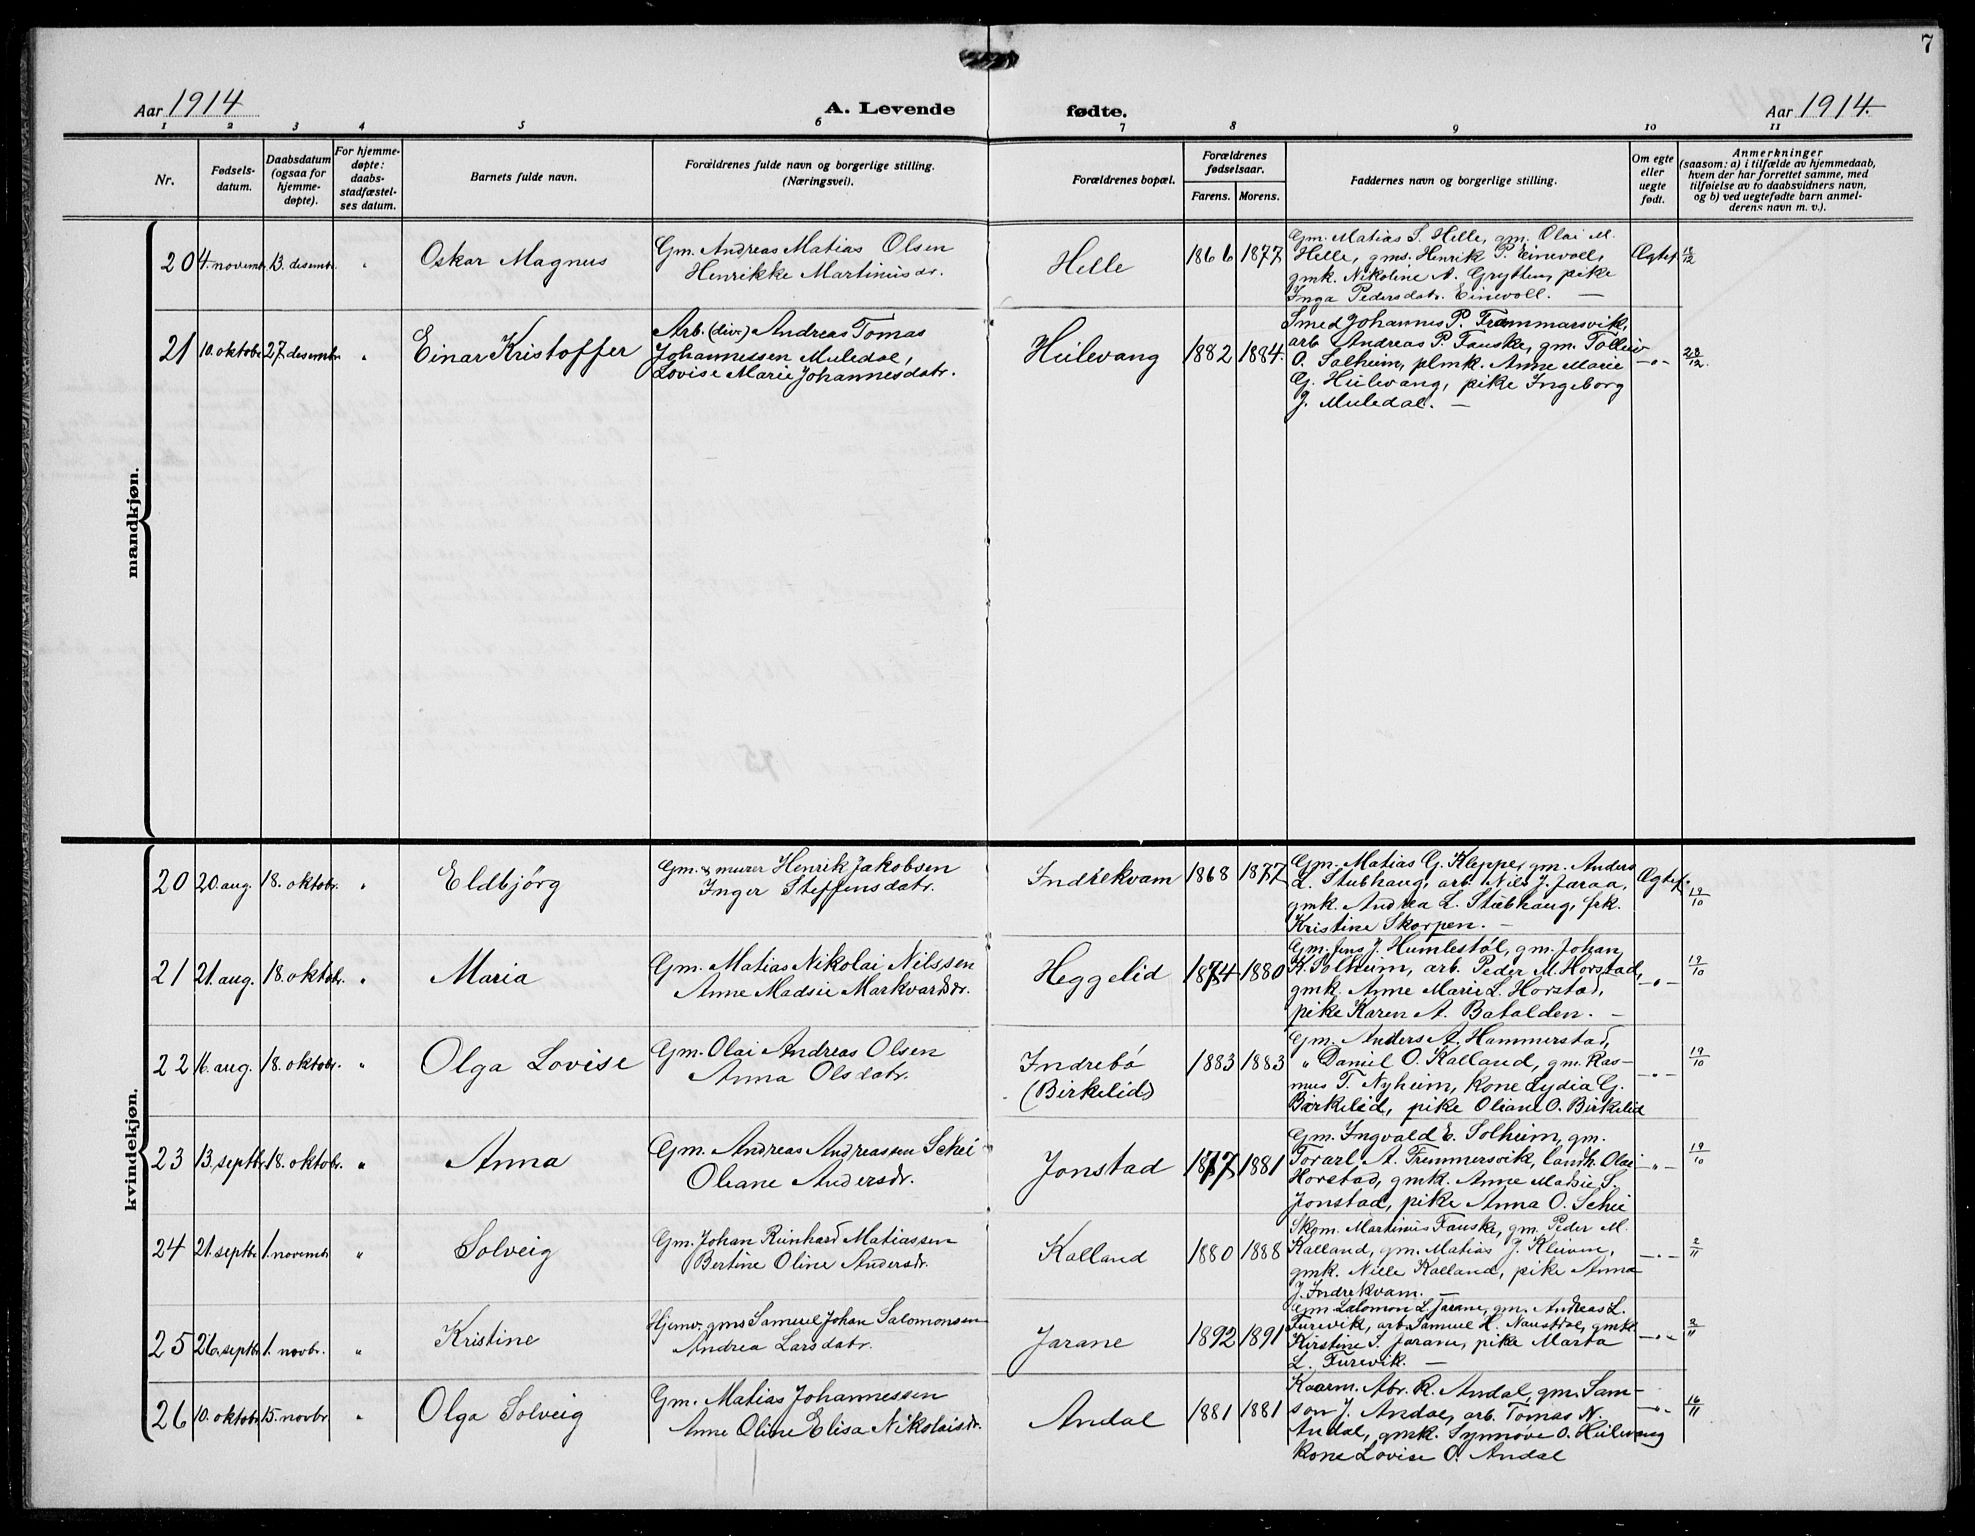 7
Aar 1914
A. Levende fødte.
Aar 1914.
1 2 3 4 5 6 7 8 9 10 11
Nr.
Fødsels-
datum.
Daabsdatum
(ogsaa for
hjemme-
døpte).
For hjemme-
døpte:
daabs-
stadfæstel-
ses datum.
Barnets fulde navn.
Forældrenes fulde navn og borgerlige stilling.
(Næringsvei).
Forældrenes bopæl.
Forældrenes
fødselsaar.
Farens. Morens.
Faddernes navn og borgerlige stilling.
Om egte
eller
uegte
født.
Anmerkninger
(saasom: a) i tilfælde av hjemmedaab,
hvem der har forrettet samme, med
tilføielse av to daabsvidners navn,
og b) ved uegtefødte barn anmel-
derens navn m. v.).
mandkjøn.
20 4. novembr. 13. desembr. "
Oskar Magnus
Gm. Andreas Matias Olsen
Henrikke Martinusdr.
Helle
1866 1877
Gm. Matias S. Helle, gm. Olai M.
Helle, gms. Henrik P. Einevoll,
gmk. Nikoline A. Grytten, pike
Inga Pedersdatr. Einevoll. —
Ægtef.
13/12
21 10. oktobr 27. desembr. "
Einar Kristoffer
Arb. (div.) Andreas Tomas
Johannessen Muledal,
Lovise Marie Johannesdatr.
Hülevang
1882 1884.
Smed Johannes P. Frammarsvik,
arb. Andreas P. Fauske, gm. Tolleiv
O. Solheim, plmk. Anne Marie
G. Hülevang, pike Ingeborg
J. Muledal. —
—"—
28/12.
kvindekjøn.
20 20. aug. 18. oktobr. "
Eldbjørg
Gm. & murer Henrik Jakobsen
Inger Steffensdatr.
Indrekvam
1868 1877
Gm. Matias G. Kleppe, gm. Anders
L. Stubhaug, arb. Nils J. Jaraa,
gmk. Andrea L. Stubhaug, frk.
Kristine Skorpen. —
Ægtef.
19/10
21 21. aug. 18. oktobr. "
Maria
Gm. Matias Nikolai Nilssen
Anne Madsie Markvardsdr.
Heggelid
1874 1880
Gm. Jens J. Humlestøl, gm. Johan
K. Solheim, arb. Peder M. Horstad,
gmk. Anne Marie L. Horstad,
pike Karen A. Batalden. —
—"—
19/10
22 16. aug. 18. oktobr. "
Olga Lovise
Gm. Olai Andreas Olsen
Anna Olsdatr.
Indrebø
(Birkelid)
1883 1883
Gm. Anders A. Hammerstad,
" Daniel O. Kalland, gm. Ras-
mus T. Nyheim, kone Lydia G.
Birkelid, pike Oliane O. Birkelid
—"—
19/10
23 13. septbr. 18. oktobr. "
Anna
Gm. Andreas Andreassen Schei
Oliane Andersdr.
Jonstad
1877 1881
Gm. Ingvald E. Solheim, gm.
Torarl A. Fremmersvik, landh. Olai
Horstad, gmk. Anne Madsie S.
Jonstad, pike Anna O. Schei
—"—
19/10
24 21. septbr. 1. novembr "
Solveig
Gm. Johan Reinhard Matiassen
Bertine Oline Andersdr.
Kalland
1880 1888
Skom. Martinus Fauske, gm. Peder M.
Kalland, gm. Matias J. Kleiven,
gmk. Nille Kalland, pike Anna
J. Indrekvam. —
—"—
2/11
25 26. septbr. 1. novbr. "
Kristine
Hjemv. gms Samuel Johan Salomonsen
Andrea Larsdatr.
Jarane
1892 1891
Gm. Salomon L. Jarane, gm. Andreas L.
Furevik, arb. Samuel H. Naustdal, gmk.
Kirstine S. Jarane, pike Marta
L. Furevik. —
—"—
2/11
26 10. oktobr. 15. novbr. "
Olga Solveig
Gm. Matias Johannessen
Anne Oline Elisa Nikolaisdr.
Andal
1881 1881
Kaarm. Abr. R. Andal, gm. Sam-
son J. Andal, arb. Tomas N.
Andal, gmk. Synnøve O. Hülevang
kone Lovise O. Andal
—"—
16/11